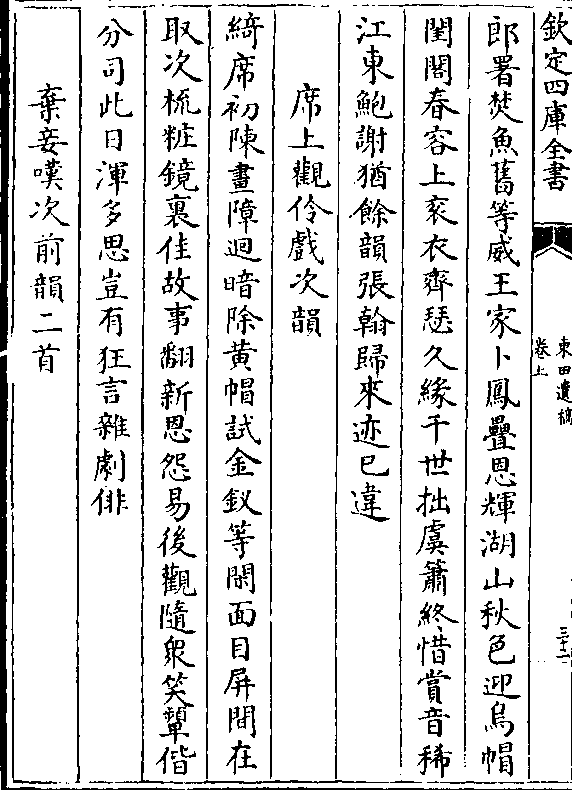 欽定四庫全書
東田遺稿
卷上
三十二
郎署焚魚舊等威王家卜鳳疊恩輝湖山秋色迎烏帽
閨閣春容上衮衣齊瑟久緣干世拙虞簫終惜賞音稀
江東鮑謝猶餘韻張翰歸來迹已違
席上觀伶戲次韻
綺席初陳畫障迴暗除黄帽試金釵等閑面目屏間在
取次梳粧鏡裏佳故事翻新恩怨易後觀隨衆笑顰偕
分司此日渾多思豈有狂言雜劇俳
棄妾嘆次前韻二首